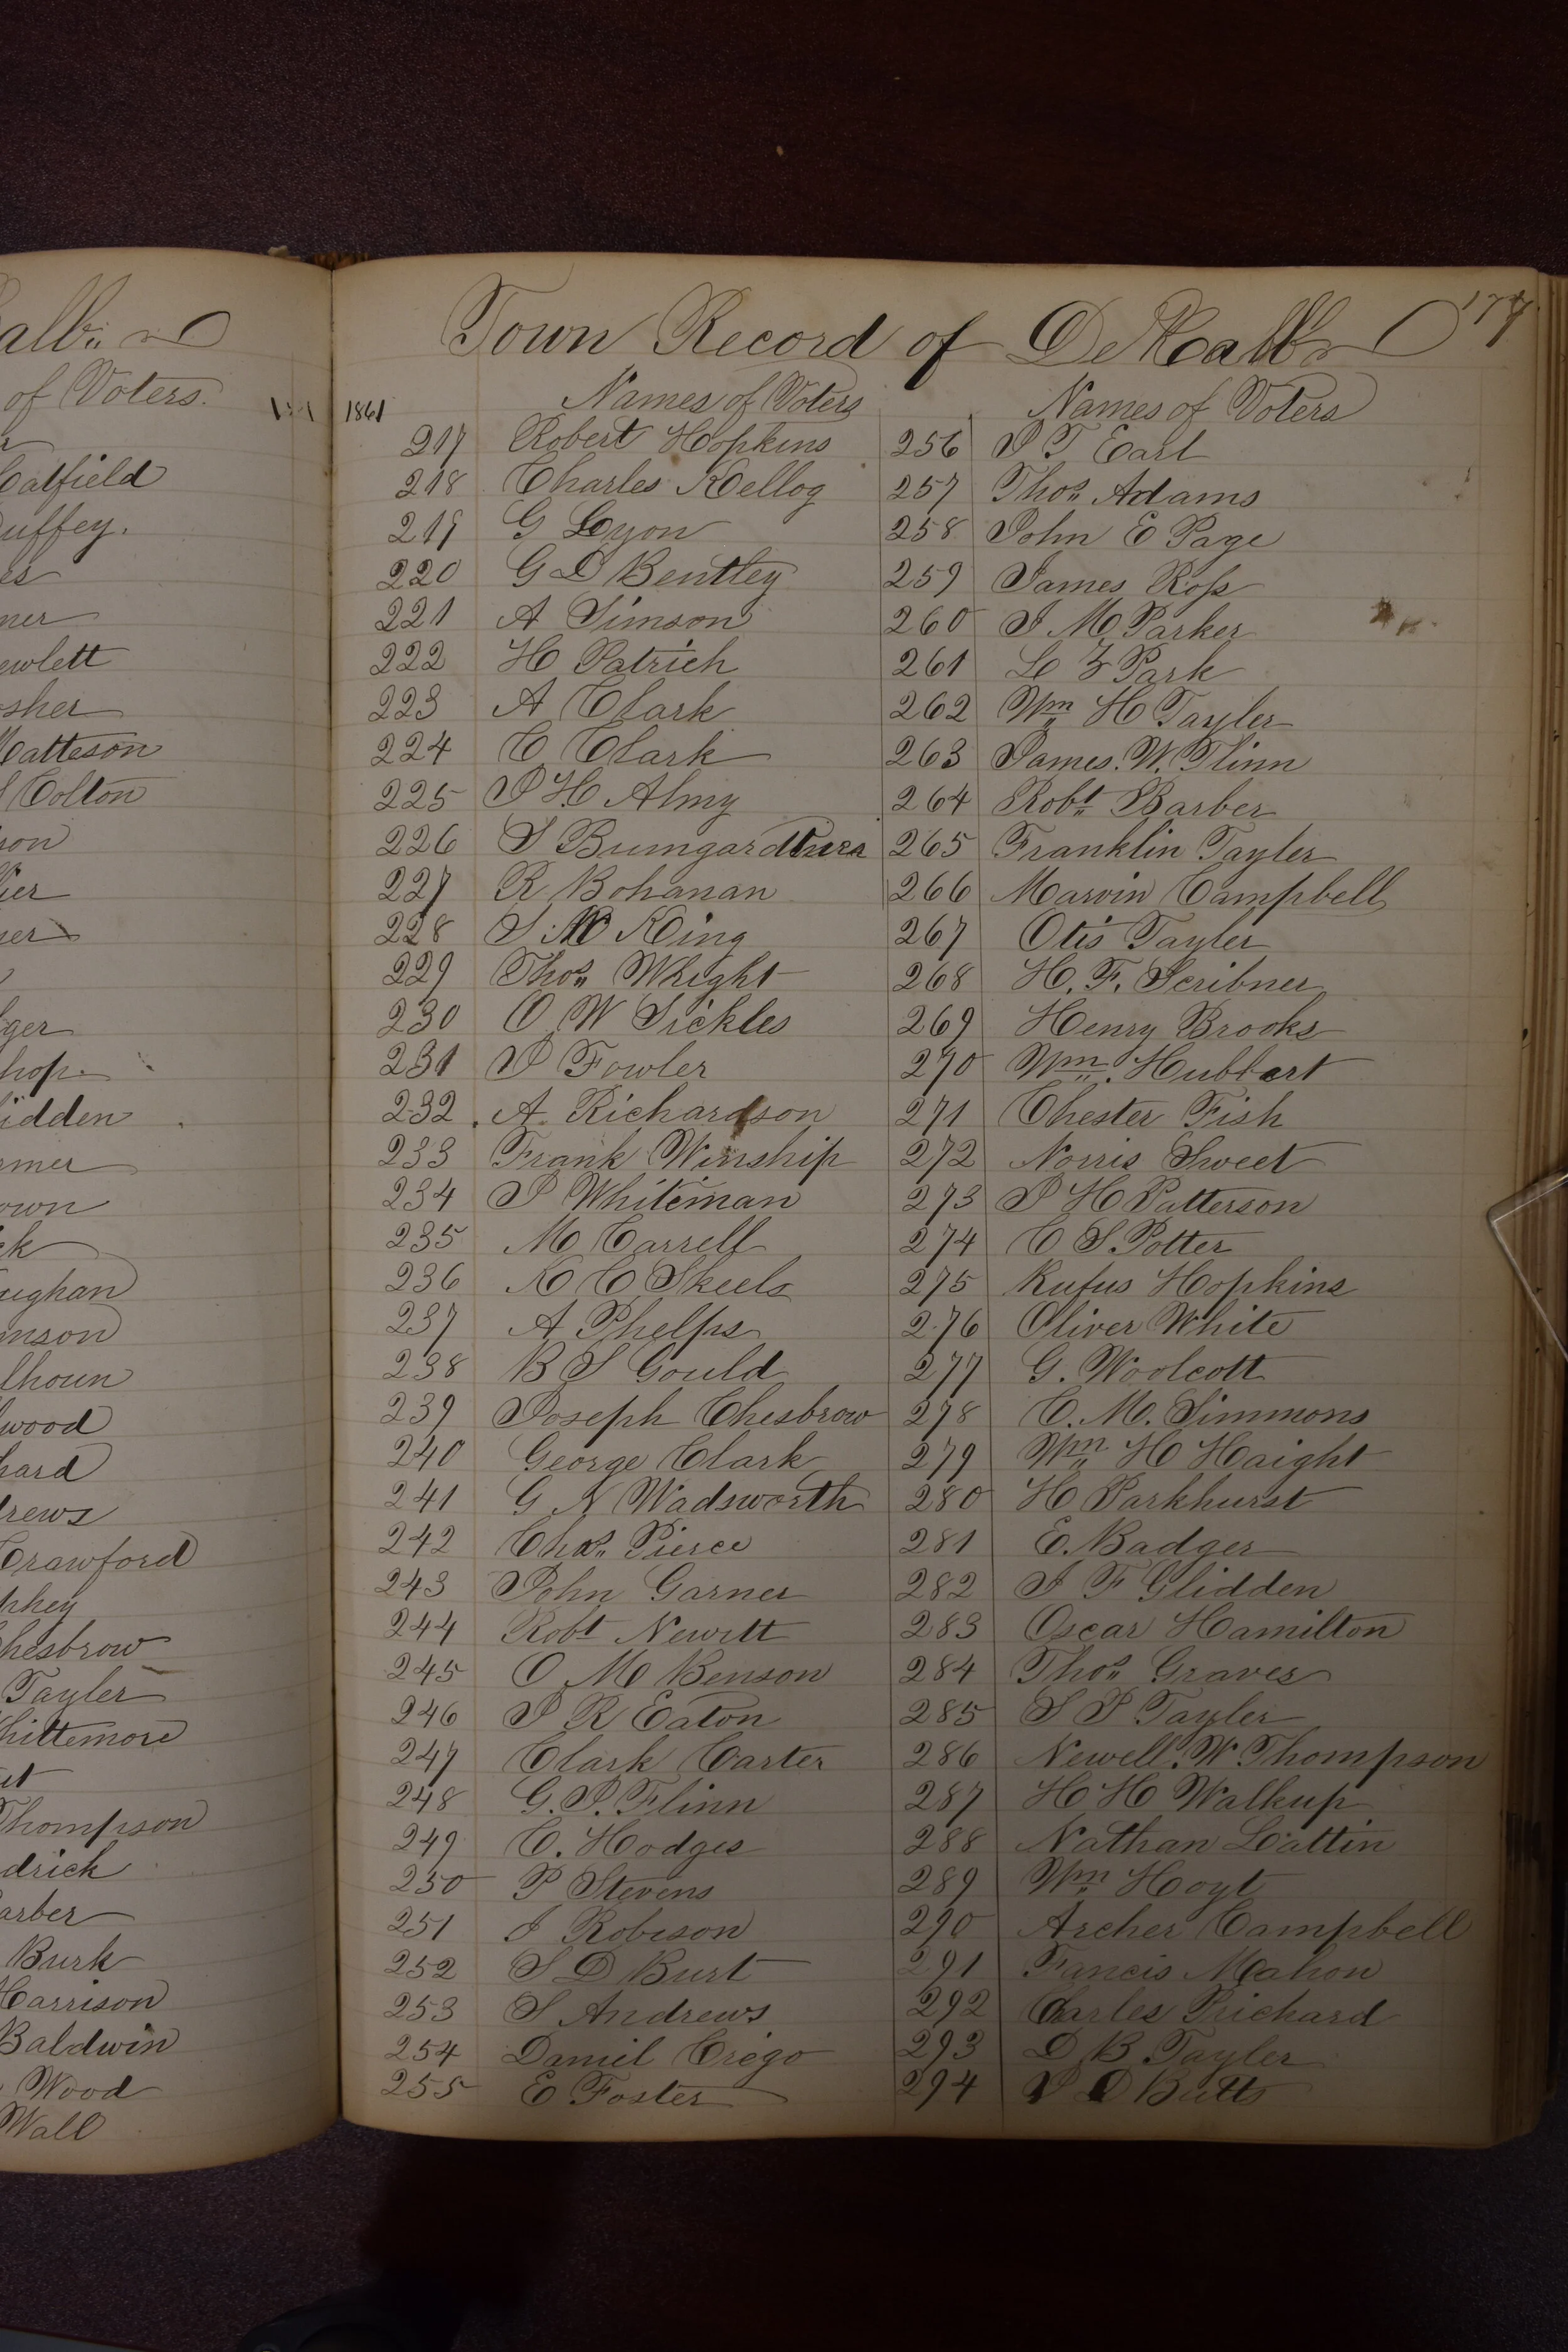 alb
of Voters.
atfield
uffey.
es
ner
ewlett
sher
atteson
Colton
son
ier
ner
ger
hop.
idden
mer
own
ck
aughan
nson
lhoun
wood
hard
drews
Crawford
phey
hesbrow
Tayler
hittemore
Thompson
drick
arber
Burk
Harrison
Baldwin
Wood
Wall
177
Town Record of DeKalb
1861
Names of Voters
217 Robert Hopkins
218 Charles Kellog
219 G Lyon
220 G D Bentley
221 A Simson
222 H Patrich
223 A Clark
224 C Clark
225 J H Almy
226 S
227 R Bohanan
228 S M King
229 Thos Whight
230 O W Sickles
231 J Fowler
232 A Richardson
233 Frank Winship
234 J Whiteman
235 M Carrell
236 K C Skeels
237 A Phelps
238 B S Gould
239 Joseph Chesbrow
240 George Clark
241 G N Wadsworth
242 Chas Pierce
243 John Garner
244 Robt Newitt
245 O M Benson
246 J R Eaton
247 Clark Carter
248 G. J. Flinn
249 C. Hodges
250 P Stevens
251 J Robison
252 S D Burt
253 S Andrews
254 Daniel Crego
255 E Foster
Names of Voters
256 J T Earl
257 Thos Adams
258 John E Page
259 James Ross
260 J M Parker
261 L Z Park
262 Wm H Tayler
263 James. W. Flinn
264 Robt Barber
265 Franklin Tayler
266 Marvin Campbell
267 Otis Tayler
268 H. F. Scribner
269 Henry Brooks
270 Wm Hubbart
271 Chester Fish
272 Norris Sweet
273 J H Patterson
274 C S. Potter
275 Rufus Hopkins
276 Oliver White
277 G. Woolcott
278 C. M. Simmons
279 Wm H Haight
280 H Parkhurst
281 E. Badger
282 J F Glidden
283 Oscar Hamilton
284 Thos Graves
285 S P Tayler
286 Newell. W. Thompson
287 H H Walkup
288 Nathan Lattin
289 Wm Hoyt
290 Archer Campbell
291 Fancis Mahon
292 Charles Prichard
293 D B Tayler
294 J D Butts